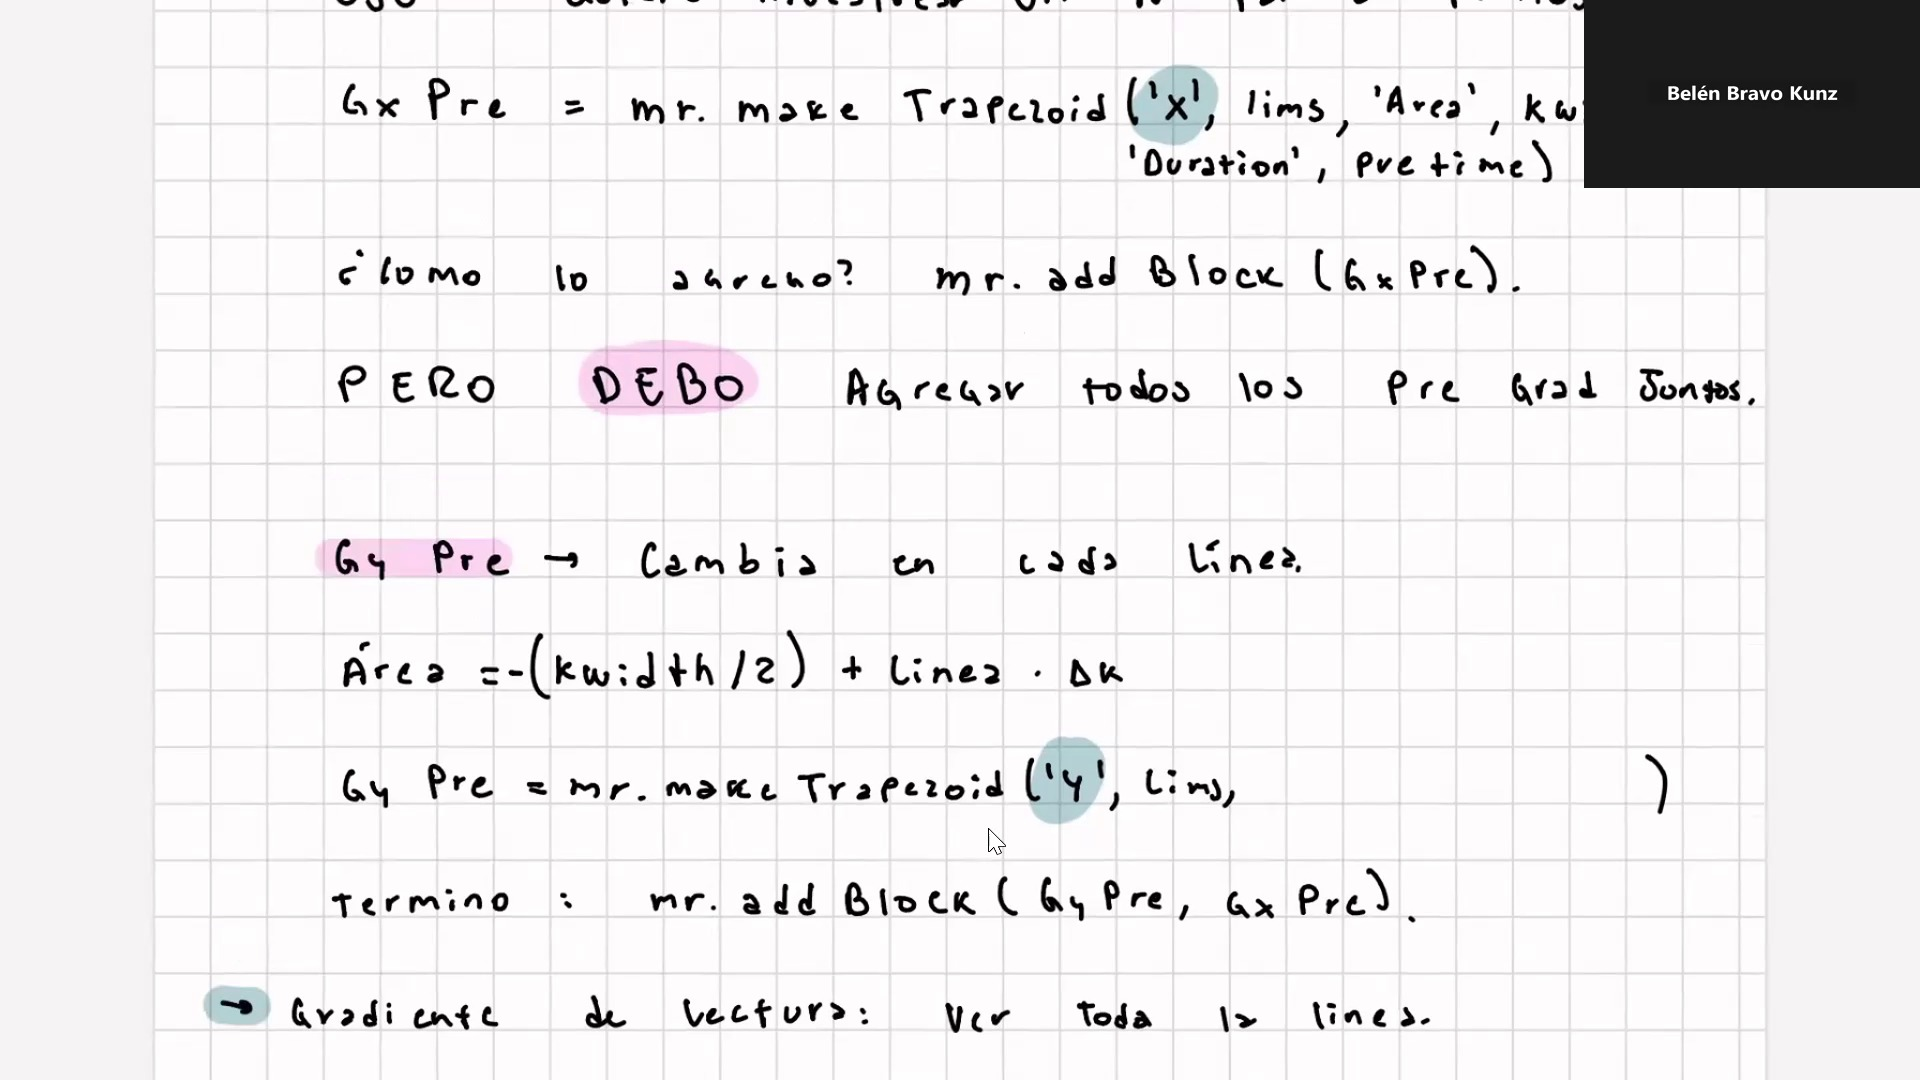 Gx Pre = mr. make Trapezoid ('x', lims, 'Area', kw
'Duration', pretime)
Belén Bravo Kunz
¿Como lo agrego? mr. add Block (Gx Pre).
PERO DEBO Agregar todos los Pre Grad Juntos.
Gy Pre → Cambia en cada línea.
Área = -(kwidth/2) + linea · Δk
Gy Pre = mr. make Trapezoid ('y', lims, )
termino : mr. add Block (Gy Pre, Gx Pre).
→ Gradiente de lectura: ver toda la linea.